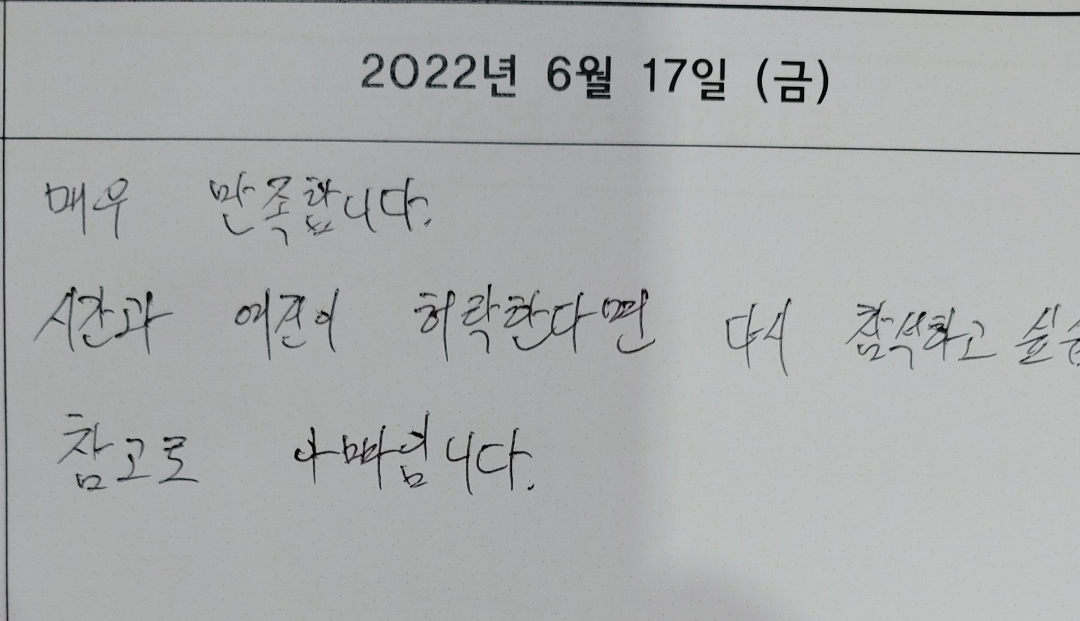 2022년 6월 17일 (금)
매우 만족합니다.
시간과 여건이 허락한다면 다시 참석하고 싶습
참고로 아빠입니다.